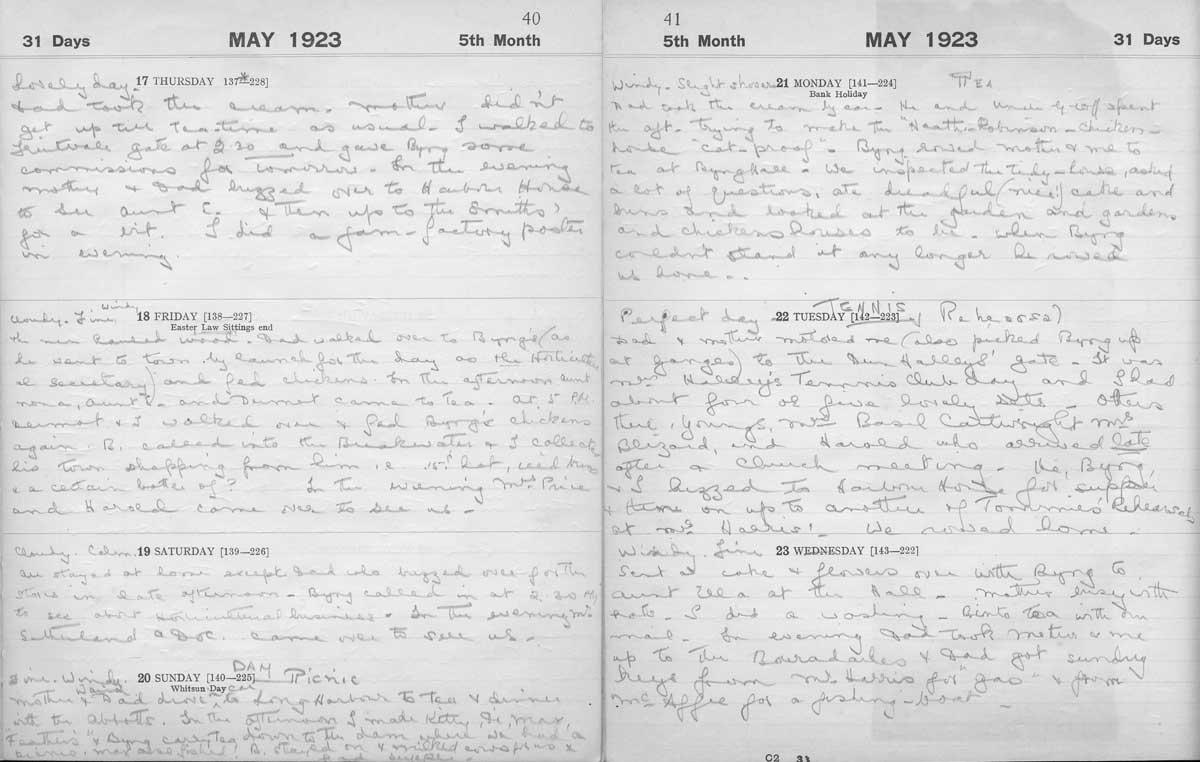 40
31 Days MAY 1923 5th Month
Lovely day. 17 THURSDAY 137—228]
Dad took the cream. Mother didn't
get up till tea-time as usual. I walked to
gate at 9.30 and gave Byng some
commissions for tomorrow. In the evening
mother & Dad buzzed over to Harbour House
to see aunt C. & then up to the Smiths'
for a bit. I did a jam-factory poster
in evening.
Cloudy. Fine, windy 18 FRIDAY [138—227]
Easter Law Sittings end
the men hauled wood. Dad walked over to Byng's (as
he went to town by launch for the day as the
secretary) and fed chickens. In the afternoon aunt
nona, aunt and came to tea. at 5 P.M.
& I walked over & fed Byng's chickens
again. B. called into the Breakwater & I collected
his town shopping from him, hat,
& a certain bottle of? In the evening Mrs Price
and Harold came over to see us -
Cloudy. Calm. 19 SATURDAY [139—226]
stayed at home except Dad who buzzed over for the
stores in late afternoon - Byng called in at 2.30 P.M.
to see about Horticultural business - In the evening Mrs
Sutherland & Doc. came over to see us -
Fine. Windy. 20 SUNDAY [140—225] DAM Picnic
Whitsun Day
mother & Dad drove to Long Harbour to tea & dinner
with the Abbotts. In the afternoon I made Kitty, Max,
"Feathers" & Byng carry tea down to the dam where we had a
picnic. B. stayed on & milked &
had supper -
41
5th Month MAY 1923 31 Days
Windy. Slight shower 21 MONDAY [141—224] TEA
Bank Holiday
Dad took the cream by car - He and Uncle spent
the aft. trying to make the "Heath-Robinson-chicken-
house "cat-proof" - Byng rowed mother & me to
tea at Byng Hall - We inspected the house, asked
a lot of questions, ate dreadful (nice!) cake and
buns and looked at the garden and gardens
and chickens houses to be - when Byng
couldn't stand it any longer he rowed
us home - -
Perfect day 22 TUESDAY [142—223] TENNIS Rehearsal
Dad & mother motored me (also picked Byng up
at Ganges) to the Halleys' gate - It was
Mrs Halley's Tennis Club day and I had
about four or five lovely sets - Others
there, Youngs, Mrs Basil Cartwright Mrs
Blizard, and Harold who arrived late
after a church meeting - He, Byng,
& I buzzed to Harbour House for supper
& then on up to another of Tommies' Rehearsals
at Mrs Harris'. We rowed home -
Windy. Fine 23 WEDNESDAY [143—222]
Sent a cake & flowers over with Byng to
aunt Ella at the Hall - mother busy with
I did a washing - B. into tea with
mail - In evening Dad took mother & me
up to the Borradailes & Dad got sundry
keys from Mr Harris for "gas" & from
Mr Affee for a fishing-boat -
C2 31